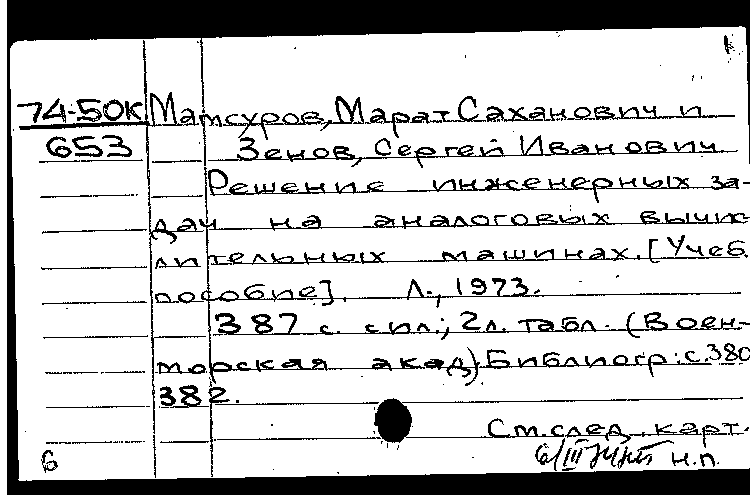 74-50К Матсуров, Марат Саханович и
653 Зенов, Сергей Иванович
Решение инженерных за-
дач на аналоговых вычис
лительных машинах. [Учеб.
пособие]. Л., 1973.
387 с. с ил.; 2 л. табл. (Воен-
морская акад) Библиогр.: с.380
382.
См. след. карт.
6 н.п.